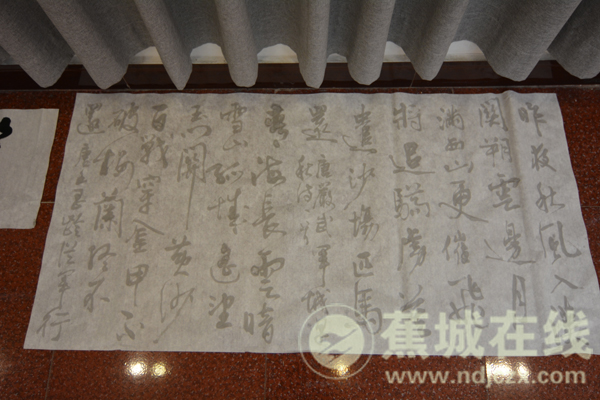 昨夜秋風入漢
關朔雲邊月
滿西山更催飛
將追驕虜莫
遣沙場匹馬
還 唐嚴武軍城
青海長雲暗
雪山孤城遙望
玉門關 黃沙
百戰穿金甲不
破樓蘭終不
還 唐王昌齡從軍行
蕉城在线
www.ndjczx.com